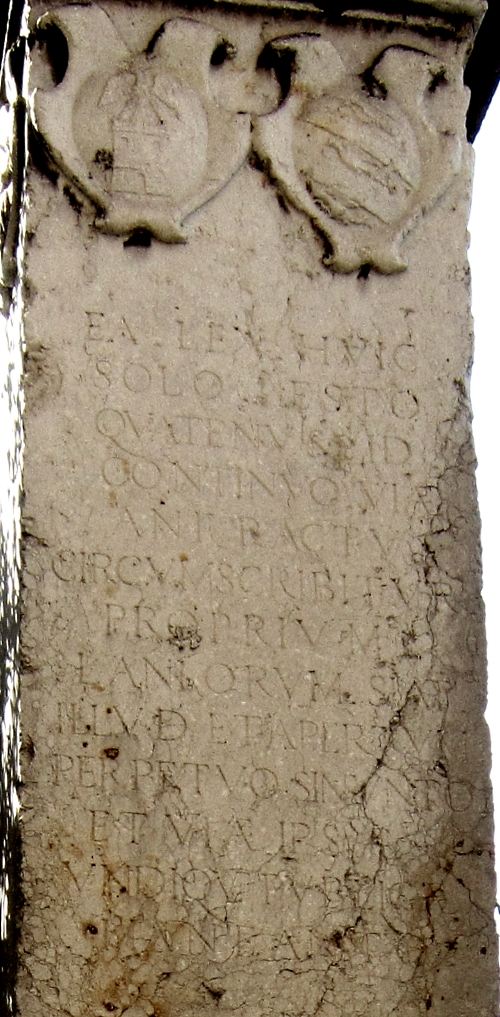 EA LEX HVIC
SOLO ESTO
QVATENVS ID
CONTINVO VIAE
ANFRACTV
CIRCVMSCRIBITVR
PROPRIVM
LANIORVM
ILLVD ET APERTVM
PERPETVO SINVNTO
ET VIA IPSA
VNDIQVE PVBLICA